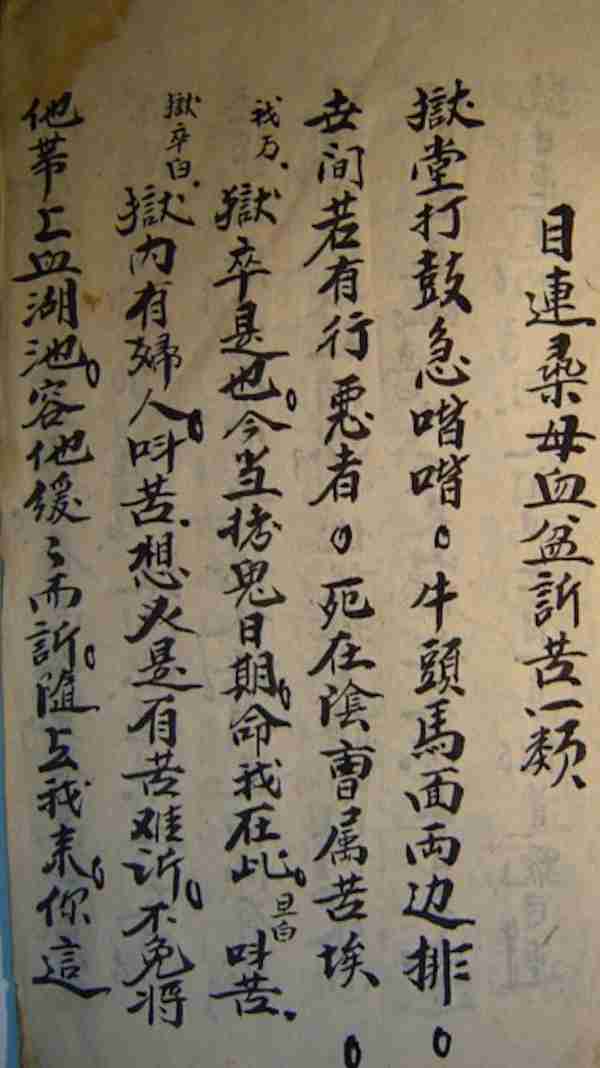 目連尋母血盆訴苦一類
獄堂打鼓急喈喈。牛頭馬面両边排。
世间若有行悪者。死在陰曹属苦埃。
我乃、獄卒是也。今当拷鬼日期。命我在此。旦白 呌苦、
獄卒白、獄内有婦人。呌苦、想必是有苦难訴。不免将
他帶上血湖池。容他緩々而訴。隨上我来。你這